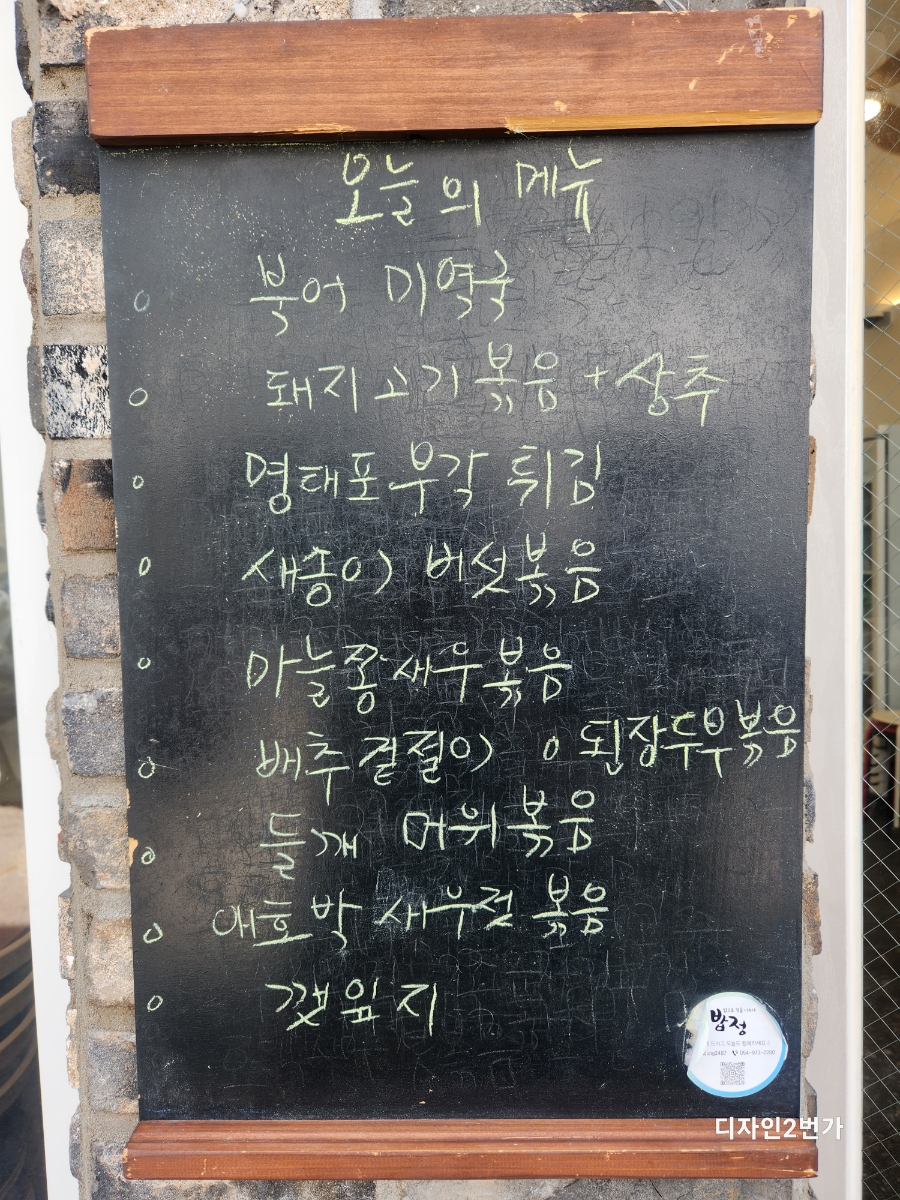 오늘의 메뉴
o 북어 미역국
o 돼지고기볶음+상추
o 명태포부각 튀김
o 새송이 버섯볶음
o 마늘쫑새우볶음
o 배추겉절이 o 된장두부볶음
o 들깨 머위볶음
o 애호박 새우젓 볶음
o 깻잎지
밥정
054-973-2280
디자인2번가